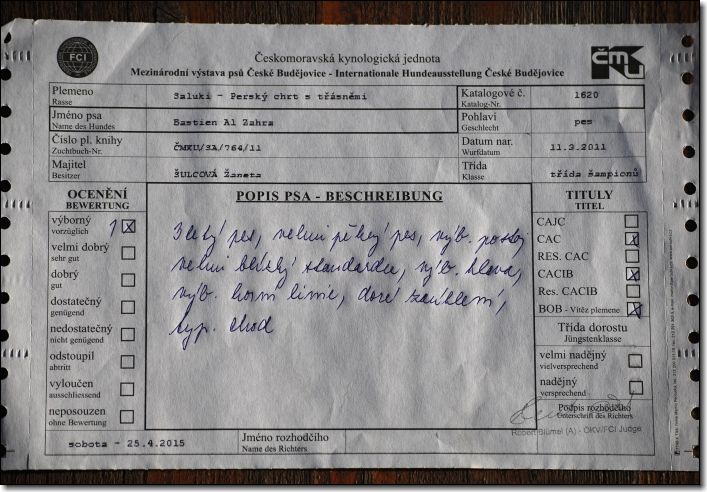 FCI
Českomoravská kynologická jednota
Mezinárodní výstava psů České Budějovice - Internationale Hundeausstellung České Budějovice
ČMKU
Plemeno
Rasse
Saluki - Perský chrt s třásněmi
Katalogové č.
Katalog-Nr.
1620
Jméno psa
Name des Hundes
Bastien Al Zahra
Pohlaví
Geschlecht
pes
Číslo pl. knihy
Zuchtbuch-Nr.
ČMKU/SA/764/11
Datum nar.
Wurfdatum
11.3.2011
Majitel
Besitzer
ŠULCOVÁ Žaneta
Třída
Klasse
třída šampionů
OCENĚNÍ
BEWERTUNG
výborný 1 x
vorzüglich
velmi dobrý
sehr gut
dobrý
gut
dostatečný
genügend
nedostatečný
nicht genügend
odstoupil
abtritt
vyloučen
ausschliessend
neposouzen
ohne Bewertung
POPIS PSA - BESCHREIBUNG
letý pes, velmi pěkný pes, výb. postoj
velmi blízký standardu, výb. hlava,
výb. horní linie, zaúhlení,
typ. chod
TITULY
TITEL
CAJC
CAC x
RES. CAC
CACIB x
Res. CACIB
BOB - Vítěz plemene x
Třída dorostu
Jüngstenklasse
velmi nadějný
vielversprechend
nadějný
versprechend
Podpis rozhodčího
Unterschrift des Richters
Robert Blümel (A) - ÖKV/FCI Judge
sobota - 25.4.2015
Jméno rozhodčího
Name des Richters